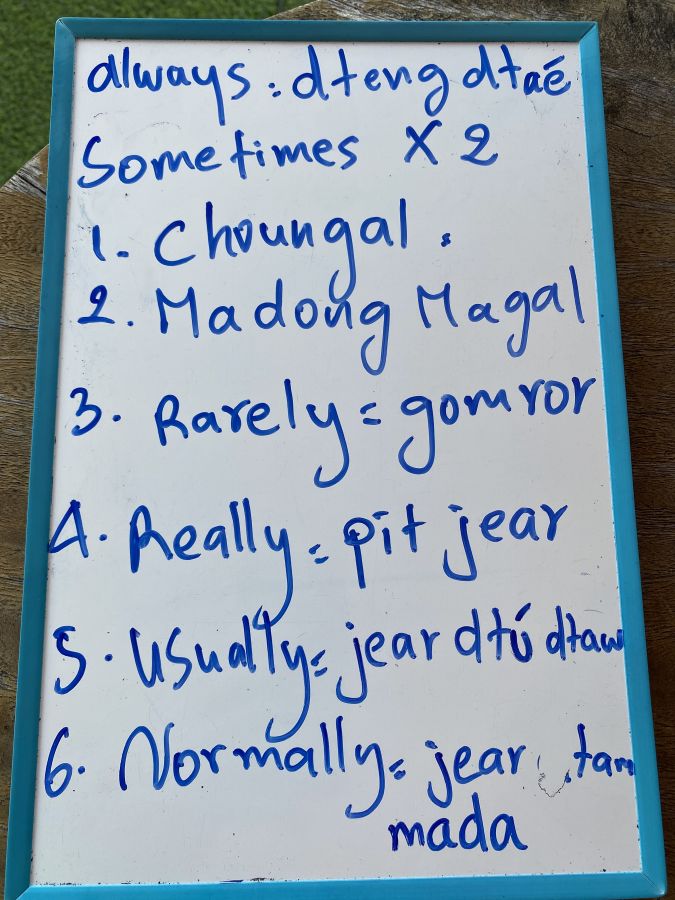 always: dteng dtaé
Sometimes X 2
1. Choungal.
2. Madong Magal
3. Rarely = gomror
4. Really = pit jear
5. Usually = jear dtú dtaw
6. Normally = jear tam
mada